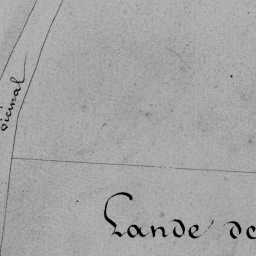 vicinal
Lande de